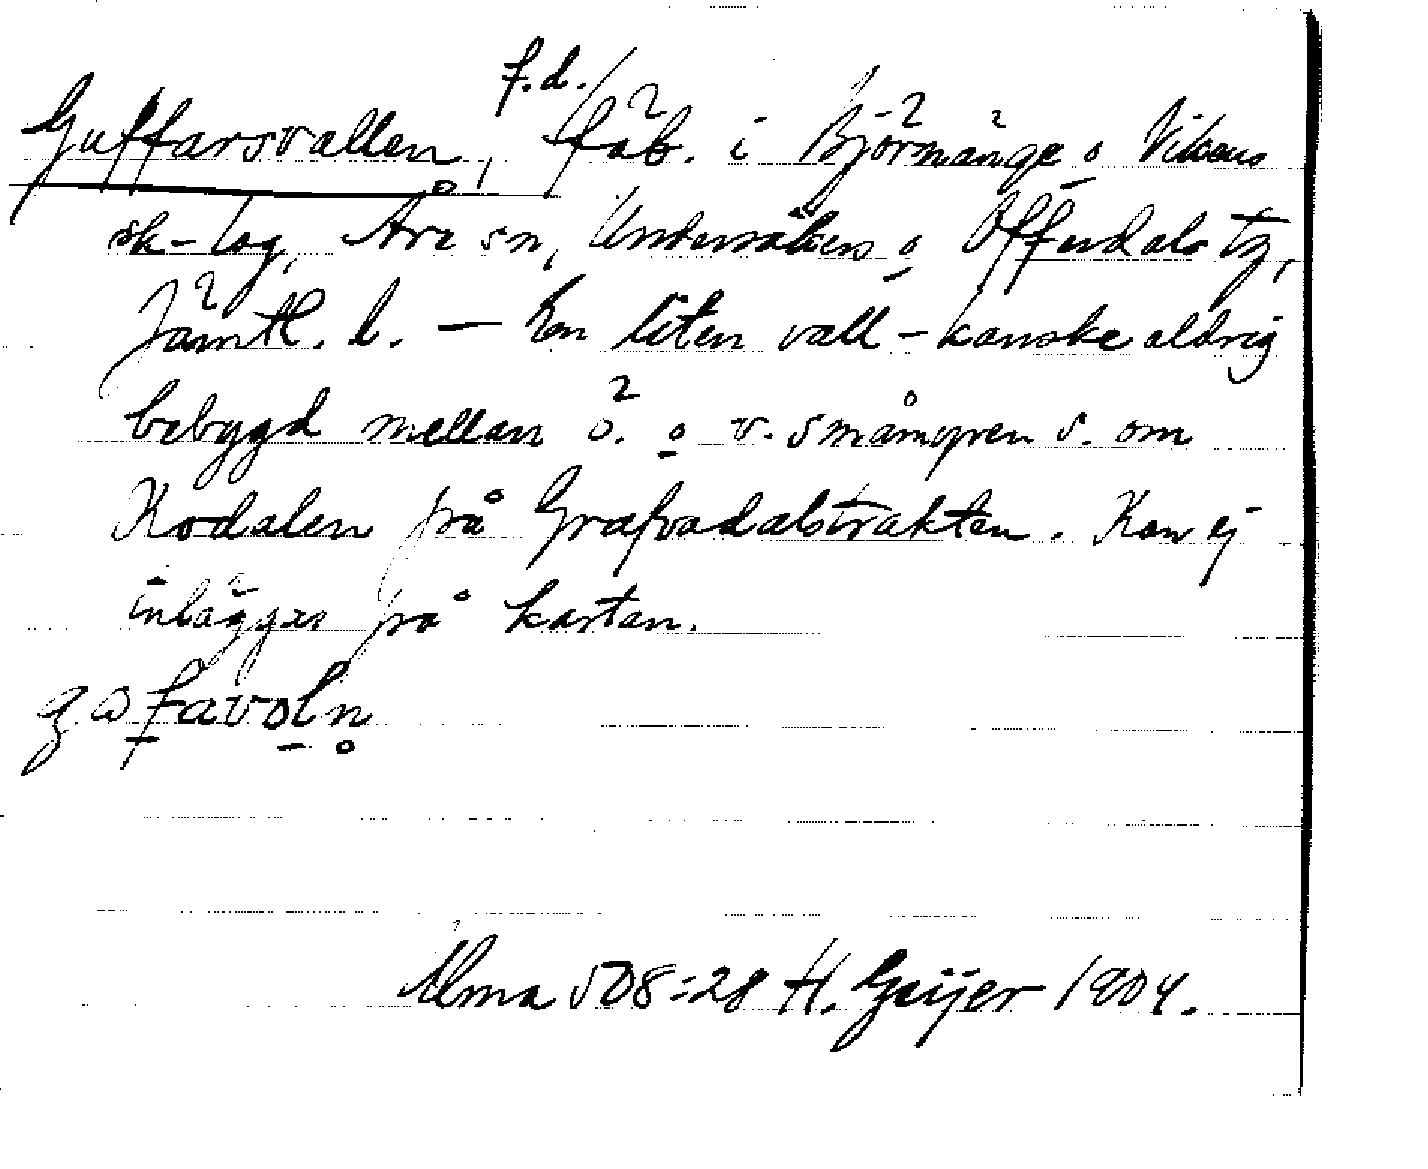 f.d.
Guffarsvallen, fäb. i Björnänge o Vikens
sk-lag, Åre sn, Undersåkers o Offerdals tg,
Jämtl. l. — En liten vall - kanske aldrig
bebyggd mellan ö. o v. småmyren s. om
Kodalen på Grafvadalstrakten. Kan ej
inläggas på kartan.
favoln
Alma 508:28 H. Geijer 1904.